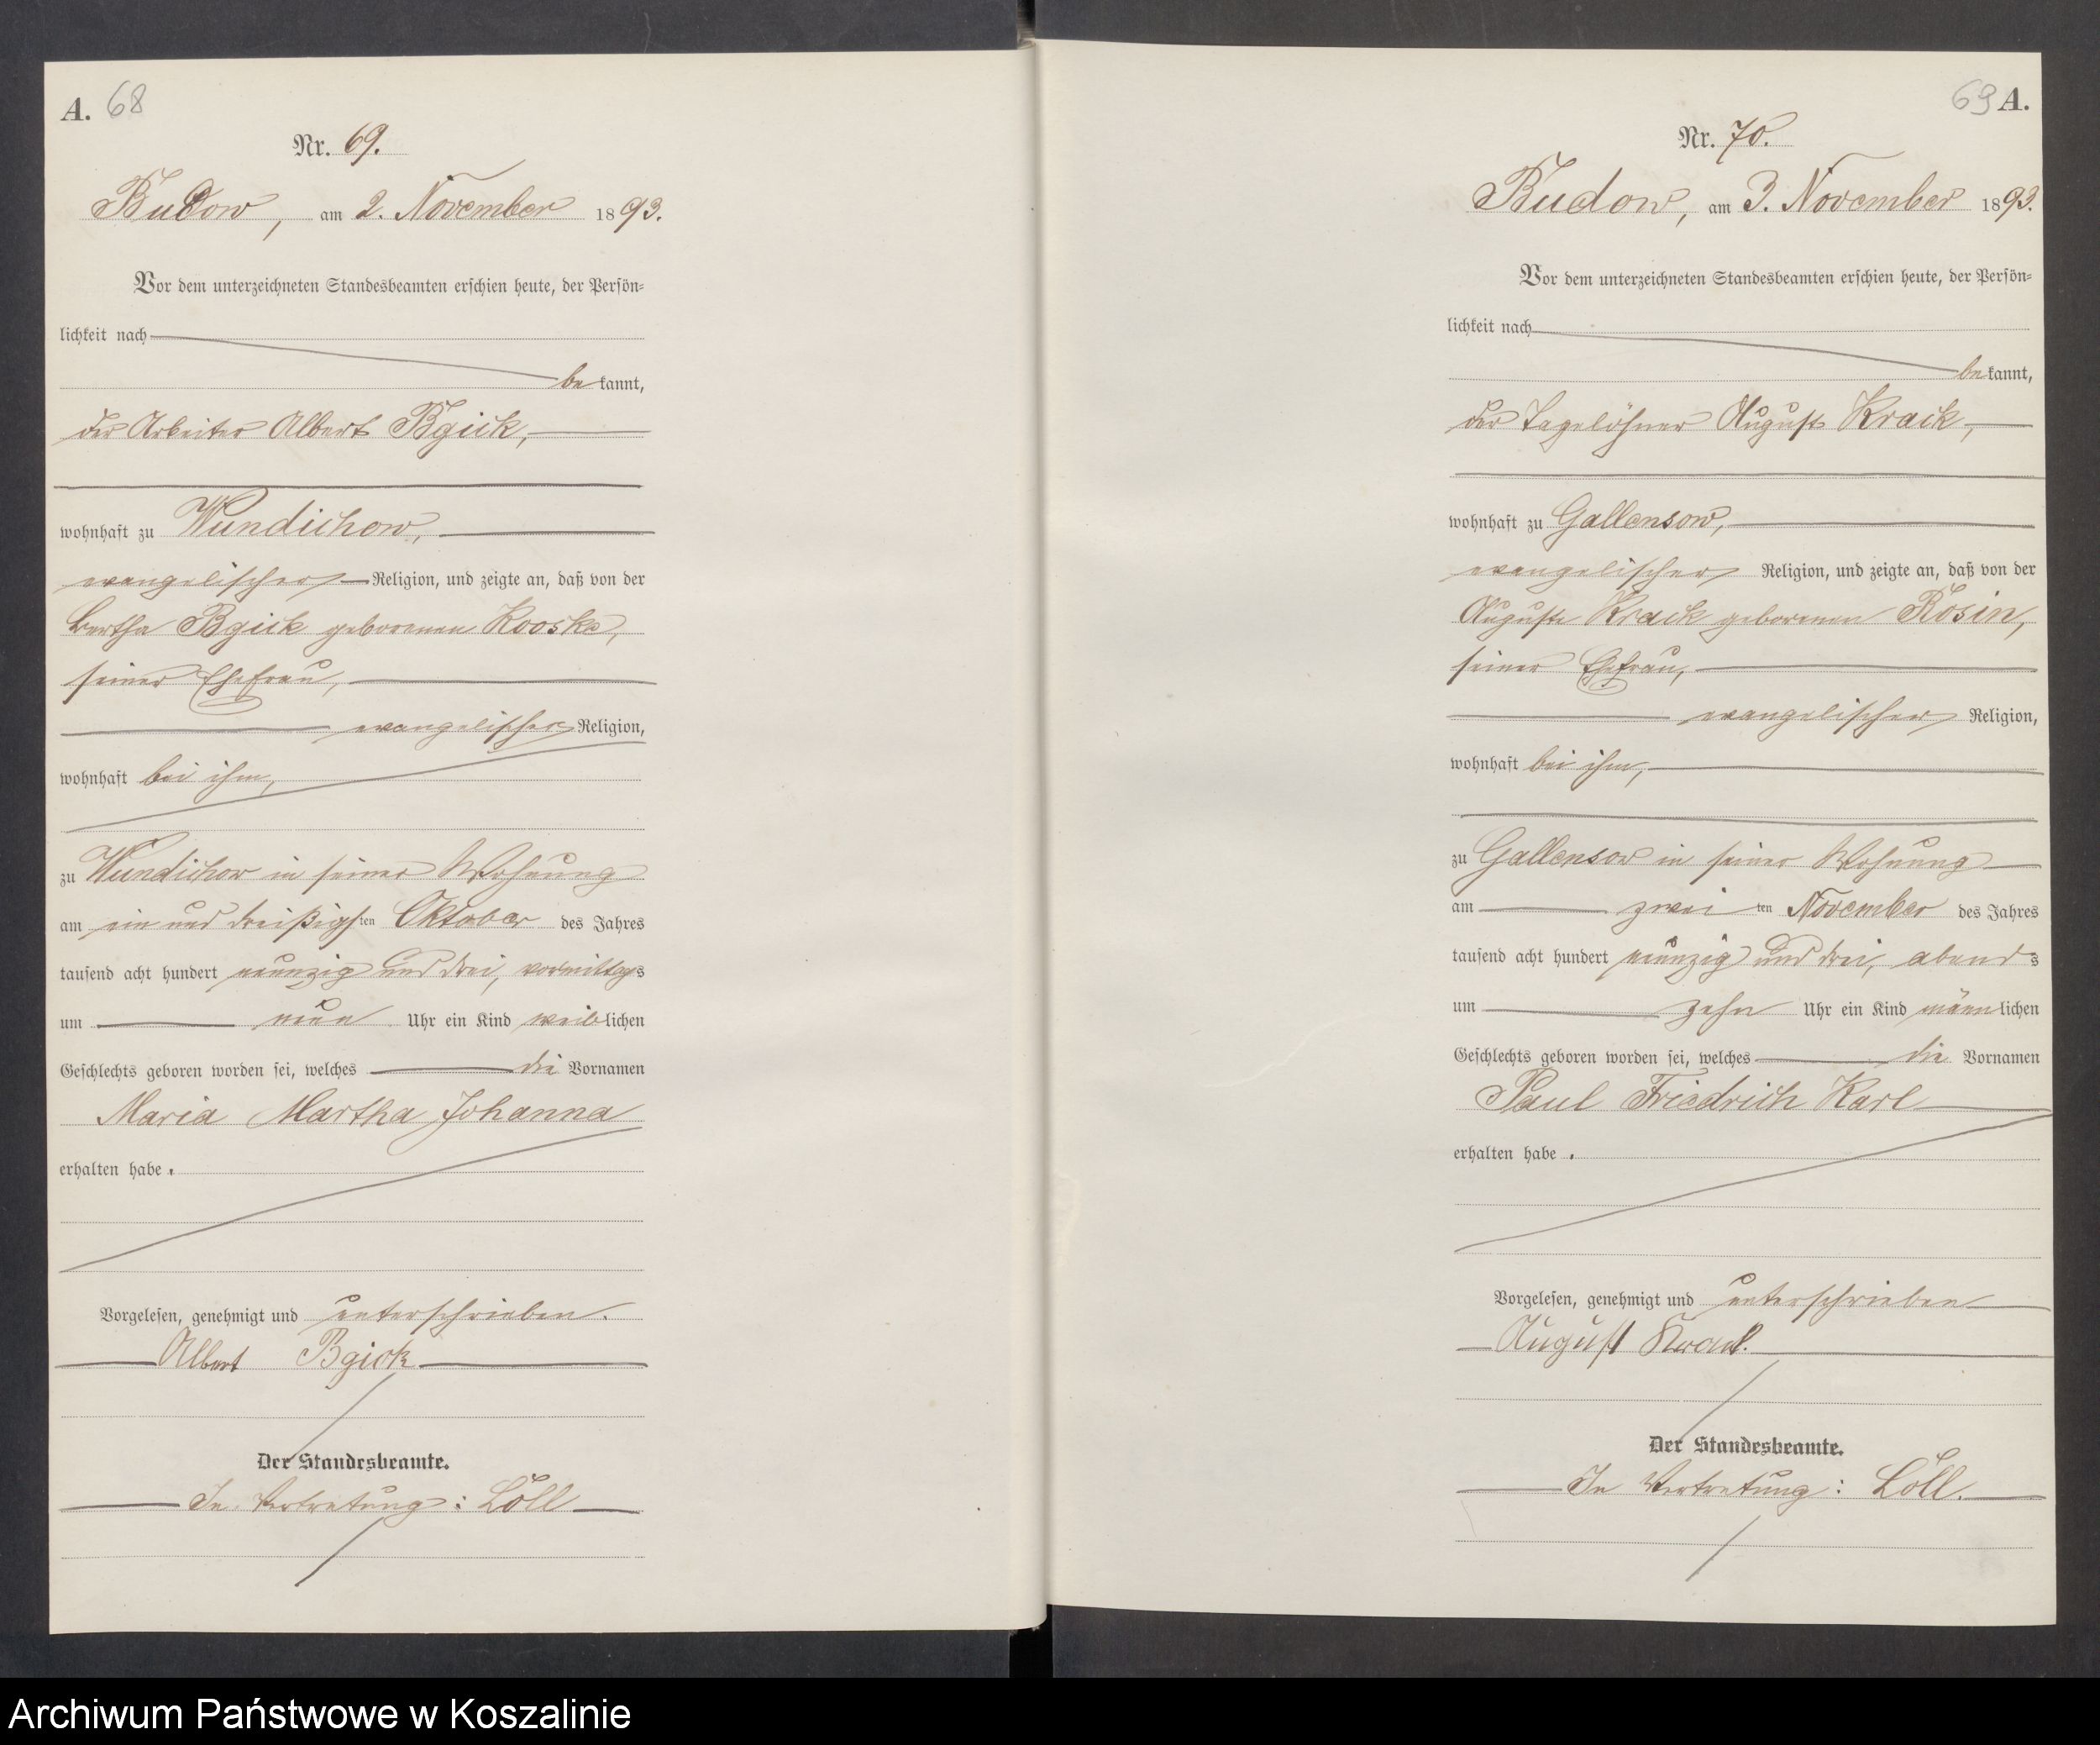 A. 68
Nr. 69.
Budow, am 2. November 1893.
Vor dem unterzeichneten Standesbeamten erschien heute, der Persön-
lichkeit nach
bekannt,
der Arbeiter Albert Bgick,
wohnhaft zu Wundichow,
evangelischer Religion, und zeigte an, daß von der
Bertha Bgick geborenen Kooske,
seiner Ehefrau,
evangelischer Religion,
wohnhaft bei ihm,
zu Wundichow in seiner Wohnung
am ein und dreißigsten Oktober des Jahres
tausend acht hundert neunzig und drei, vormittags
um neun Uhr ein Kind weiblichen
Geschlechts geboren worden sei, welches die Vornamen
Maria Martha Johanna
erhalten habe.
Vorgelesen, genehmigt und unterschrieben.
Albert Bgick
Der Standesbeamte.
In Vertretung: Löll
69 A.
Nr. 70.
Budow, am 3. November 1893.
Vor dem unterzeichneten Standesbeamten erschien heute, der Persön-
lichkeit nach
bekannt,
der Tagelöhner August Krack,
wohnhaft zu Gallensow,
evangelischer Religion, und zeigte an, daß von der
Auguste Krack geborenen Rosin,
seiner Ehefrau,
evangelischer Religion,
wohnhaft bei ihm,
zu Gallensow in seiner Wohnung
am zweiten November des Jahres
tausend acht hundert neunzig und drei, abends
um zehn Uhr ein Kind männlichen
Geschlechts geboren worden sei, welches die Vornamen
Paul Friedrich Karl
erhalten habe.
Vorgelesen, genehmigt und unterschrieben
August Krack.
Der Standesbeamte.
In Vertretung: Löll.
Archiwum Państwowe w Koszalinie